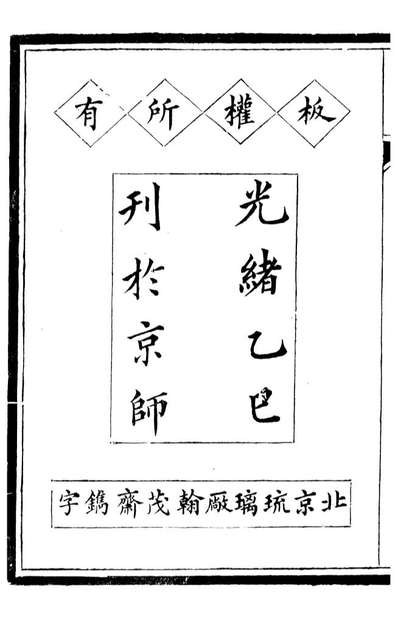 板權所有
光緒乙巳
刊於京師
北京琉璃廠翰茂齋鐫字